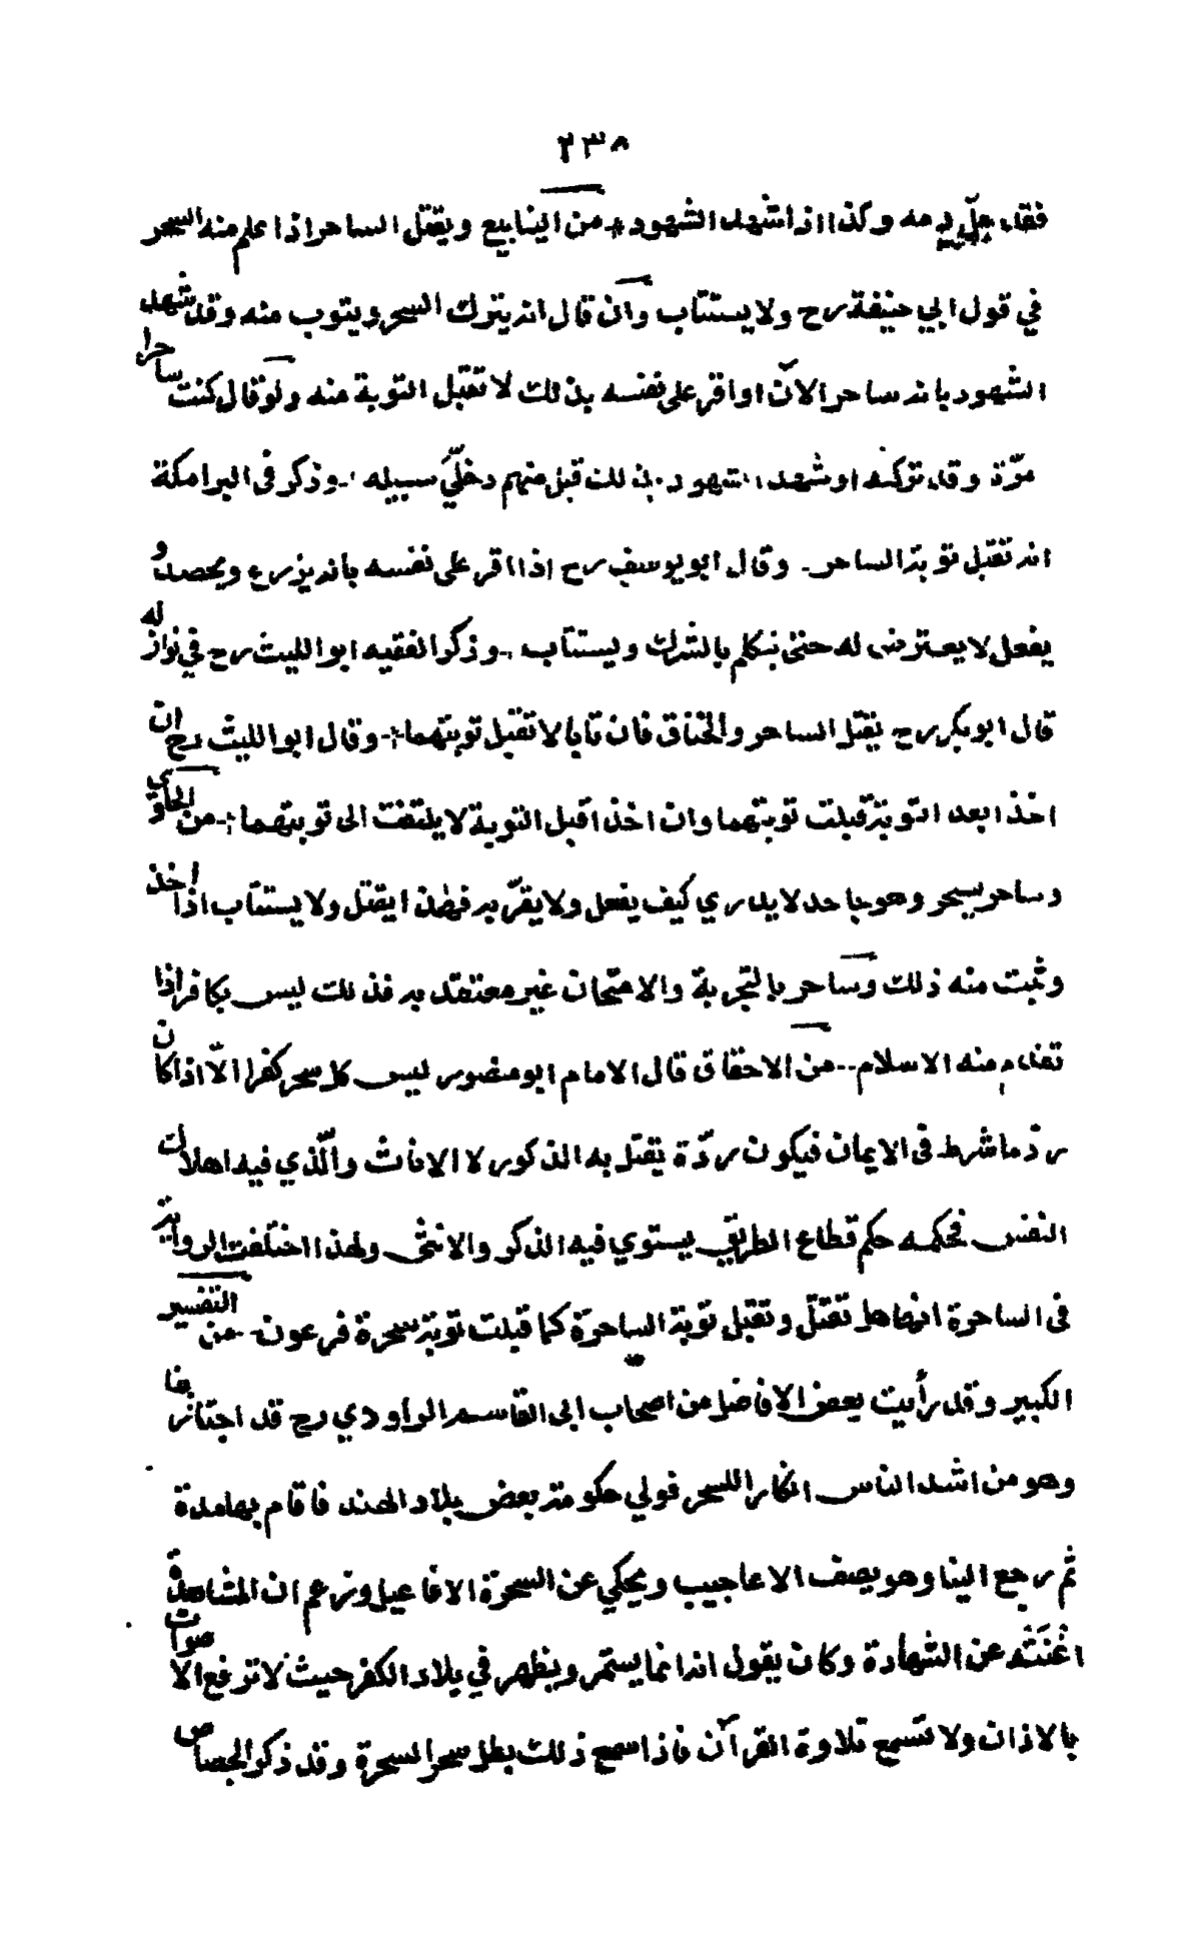 ٢٣٨
فقد حلّ دمه وكذا اذا شهد الشهود من الينابيع ويقتل الساحر اذا علم منه السحر
في قول ابي حنيفة رح ولا يستتاب وان قال انه يترك السحر ويتوب منه وقد شهد
الشهود بانه ساحر الآن او اقر على نفسه بذلك لا تقبل التوبة منه ولو قال كنت ساحرا
مرّة وقد تركته او شهد الشهود بذلك قبل منهم وخلّي سبيله وذكر في البرامكة
انه تقبل توبة الساحر وقال ابو يوسف رح اذا اقر على نفسه بانه يزرع ويحصد و
يفعل لا يعترض له حتى يتكلم بالشرك ويستتاب وذكر الفقيه ابو الليث رح في نوازله
قال ابو بكر رح يقتل الساحر والخناق فان تابا لا تقبل توبتهما وقال ابو الليث رح ان
اخذا بعد التوبة قبلت توبتهما وان اخذا قبل التوبة لا يلتفت الى توبتهما من الحاوي
وساحر يسحر وهو جاحد لا يدري كيف يفعل ولا يقرّ به فهذا يقتل ولا يستتاب اذا اخذ
وثبت منه ذلك وساحر بالتجربة والامتحان غير معتقد به فذلك ليس بكافر اذا
تقدم منه الاسلام من الاحقاق قال الامام ابو منصور ليس كل سحر كفرا الّا اذا كان
ردّ ما شرط في الايمان فيكون ردّة يقتل به الذكور لا الاناث والّذي فيه اهلاك
النفس فحكمه حكم قطاع الطريق يستوي فيه الذكر والانثى ولهذا اختلفت الرواية
في الساحرة انها هل تقتل وتقبل توبة الساحرة كما قبلت توبة سحرة فرعون من التفسير
الكبير وقد رأيت بعض الافاضل من اصحاب ابى القاسم الراودي رح قد اجتازها
وهو من اشد الناس انكارا للسحر فولي حكومة بعض بلاد الهند فاقام بها مدة
ثم رجع الينا وهو يصف الاعاجيب ويحكي عن السحرة الافاعيل وزعم ان المشاهدة
اغنته عن الشهادة وكان يقول انه انما يستمر ويظهر في بلاد الكفر حيث لا ترفع الاصوات
بالاذان ولا تسمع تلاوة القرآن فاذا سمع ذلك بطل سحر السحرة وقد ذكر الجصاص